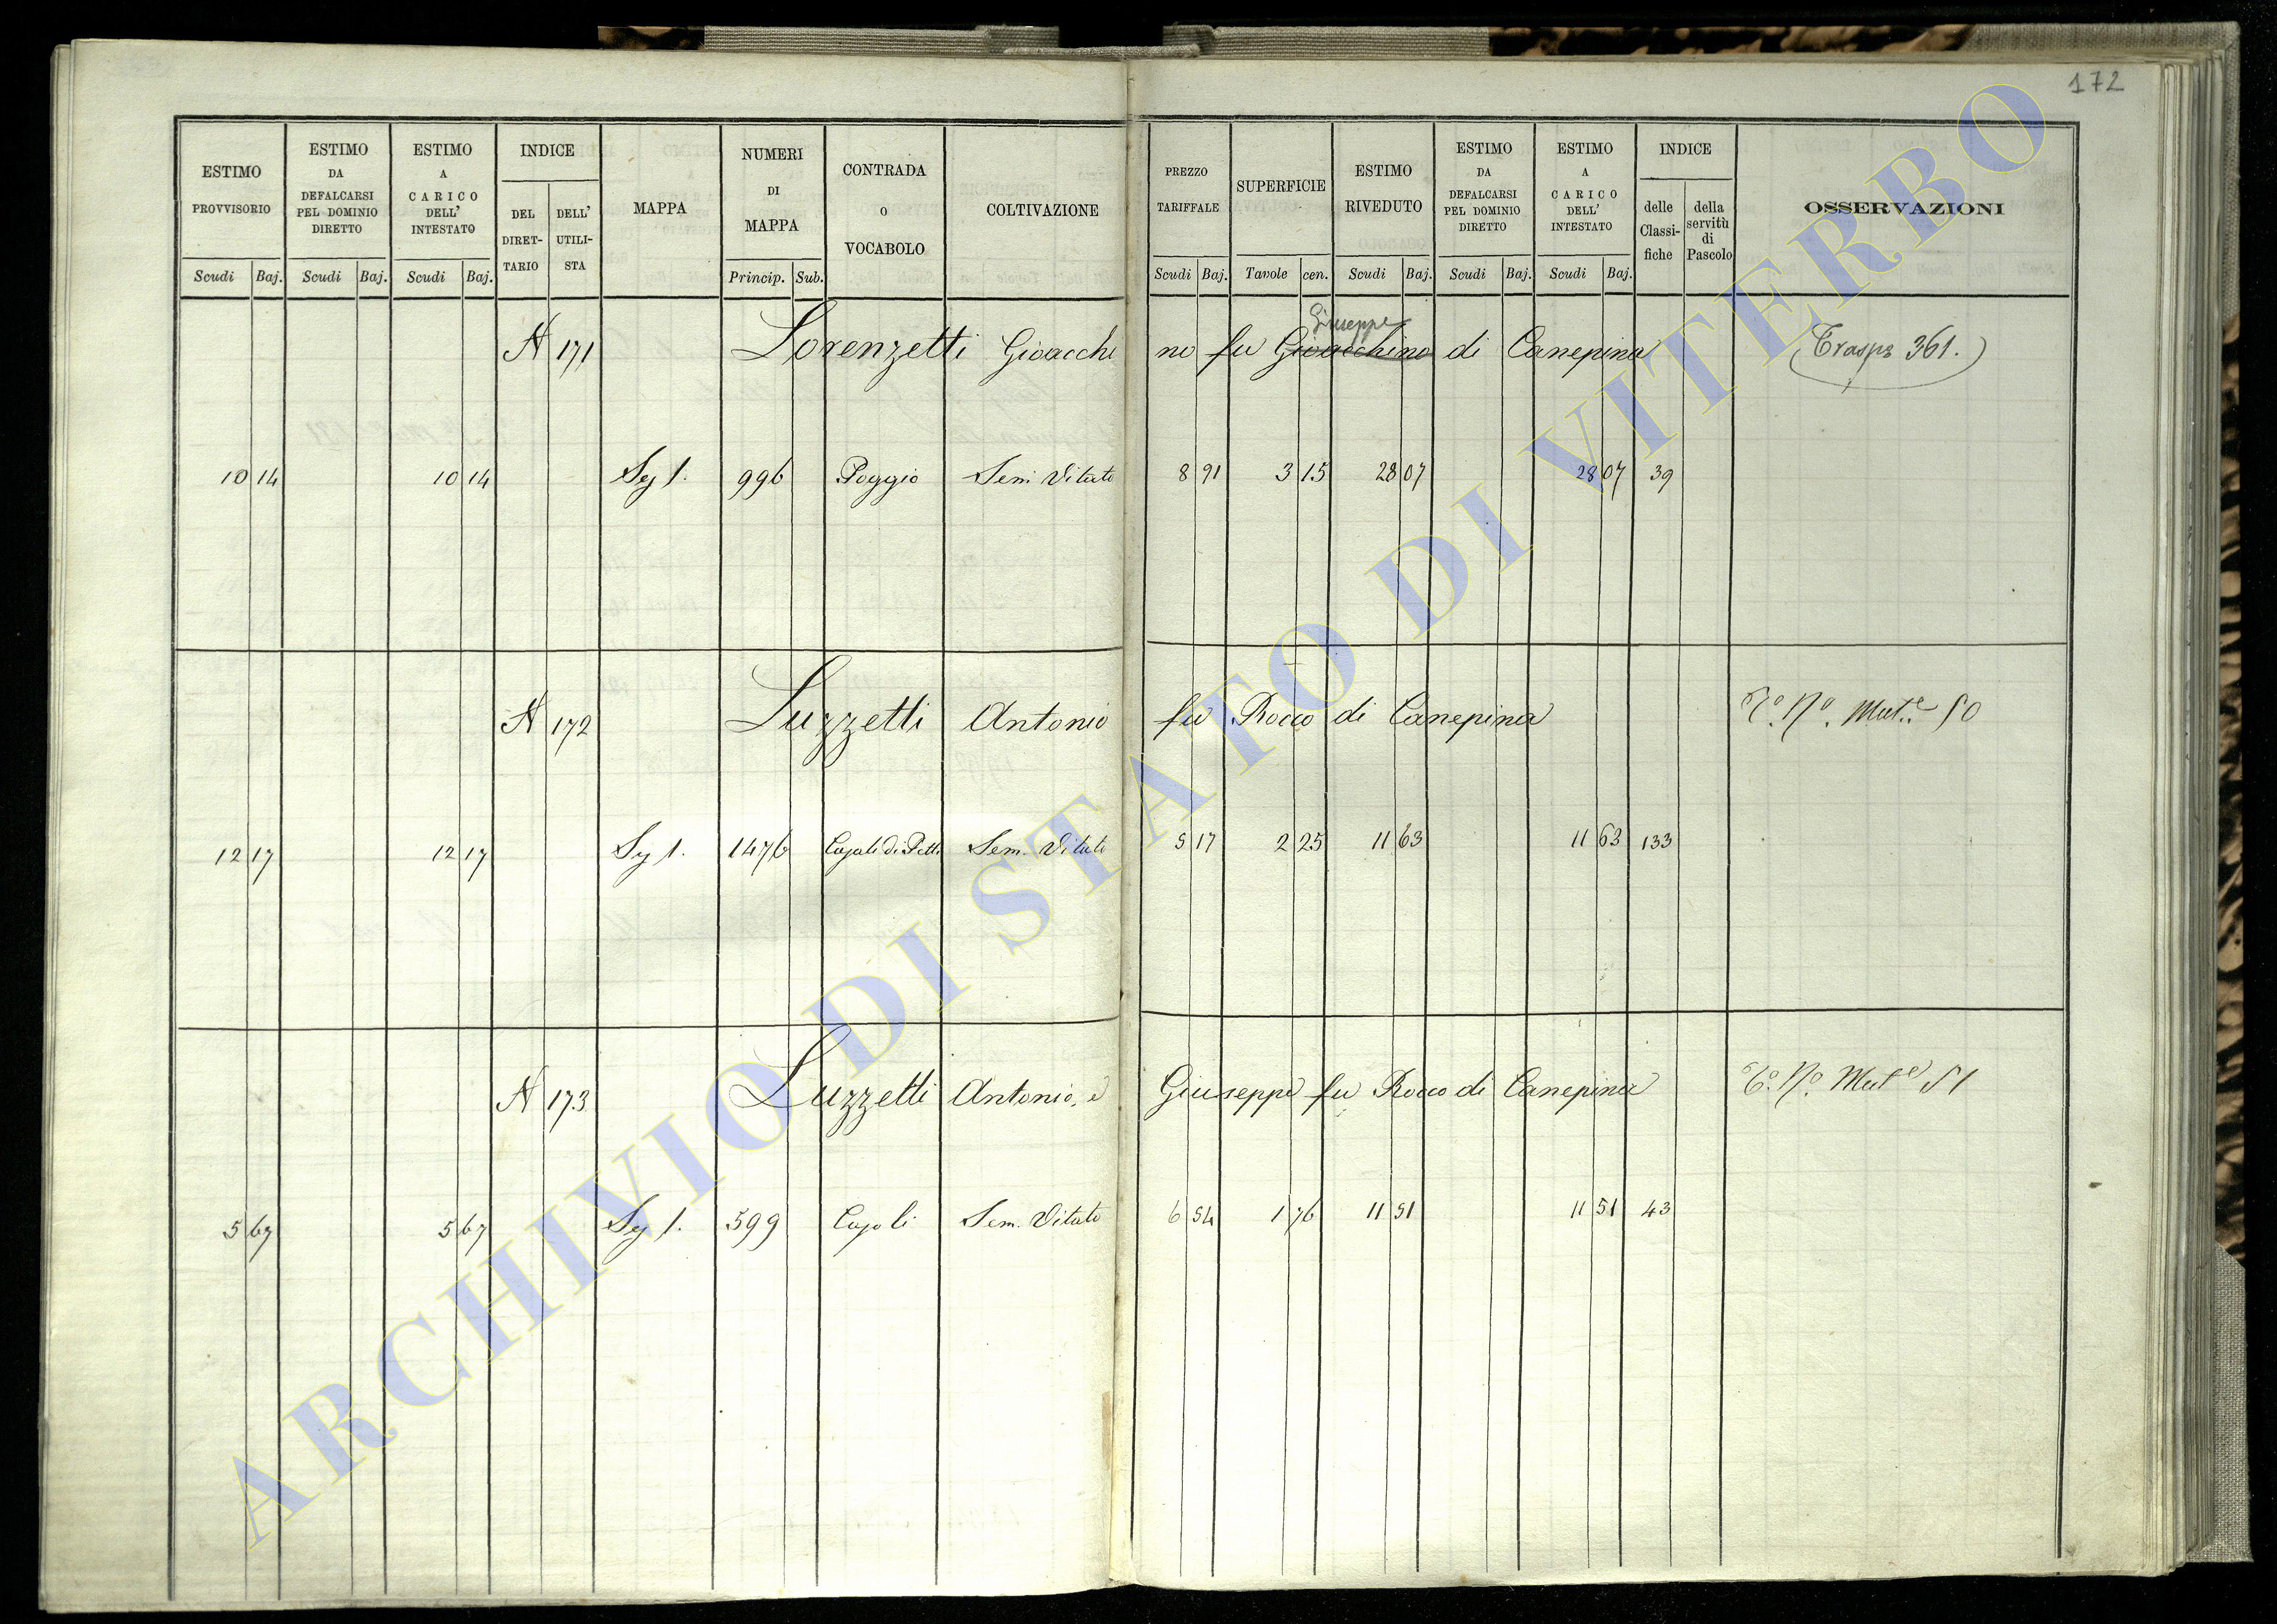 172
ESTIMO PROVVISORIO
Scudi Baj.
ESTIMO DA DEFALCARSI PEL DOMINIO DIRETTO
Scudi Baj.
ESTIMO A CARICO DELL' INTESTATO
Scudi Baj.
INDICE
DEL DIRET-TARIO
DELL' UTILI-STA
MAPPA
NUMERI DI MAPPA
Princip. Sub.
CONTRADA O VOCABOLO
COLTIVAZIONE
PREZZO TARIFFALE
Scudi Baj.
SUPERFICIE
Tavole cen.
ESTIMO RIVEDUTO
Scudi Baj.
ESTIMO DA DEFALCARSI PEL DOMINIO DIRETTO
Scudi Baj.
ESTIMO A CARICO DELL' INTESTATO
Scudi Baj.
INDICE
delle Classi-fiche
della servitù di Pascolo
OSSERVAZIONI
Giuseppe
N 171 Lorenzetti Gioacchi no fu Gioacchino di Canepina (Trasp 361.)
10 14 10 14 Sez 1. 996 Poggio Sem Vitato 8 91 3 15 28 07 28 07 39
N 172 Luzzetti Antonio fu Rocco di Canepina Mut.e 50
12 17 12 17 Sez 1. 1476 di Sem. Vitato 5 17 2 25 11 63 11 63 133
N 173 Luzzetti Antonio, e Giuseppe fu Rocco di Canepina Mut.e 51
5 67 5 67 Sez 1. 599 Sem. Vitato 6 54 1 76 11 51 11 51 43
ARCHIVIO DI STATO DI VITERBO